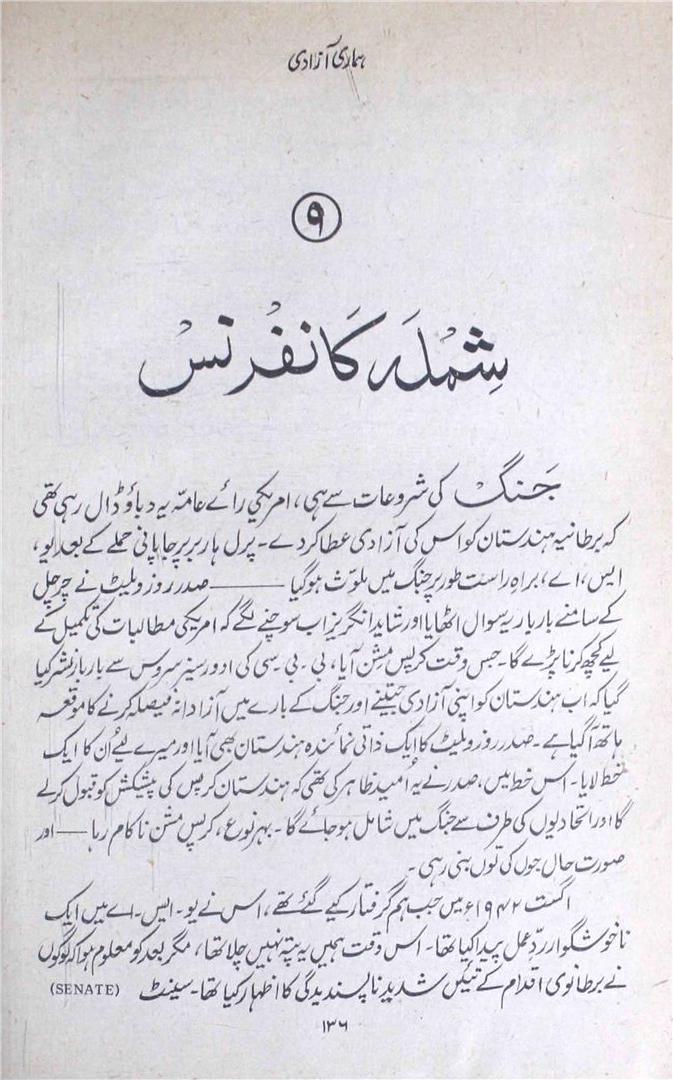 ہماری آزادی
۹
شملہ کانفرنس
جنگ کی شروعات سے ہی، امریکی رائے عامّہ یہ دباؤ ڈال رہی تھی
کہ برطانیہ ہندستان کو اس کی آزادی عطا کر دے۔ پرل ہاربر پر جاپانی حملے کے بعد یو،
ایس، اے، براہِ راست طور پر جنگ میں ملوّث ہو گیا —— صدر روزویلیٹ نے چرچل
کے سامنے بار بار یہ سوال اٹھایا اور شاید انگریز اب سوچنے لگے کہ امریکی مطالبات کی تکمیل کے
لیے کچھ کرنا پڑے گا۔ جس وقت کرپس مشن آیا، بی۔ بی۔ سی کی اوورسیز سروس سے بار بار نشر کیا
گیا کہ اب ہندستان کو اپنی آزادی جیتنے اور جنگ کے بارے میں آزادانہ فیصلہ کرنے کا موقعہ
ہاتھ آ گیا ہے۔ صدر روزویلیٹ کا ایک ذاتی نمائندہ ہندستان بھی آیا اور میرے لیے اُن کا ایک
خط لایا۔ اس خط میں، صدر نے یہ اُمید ظاہر کی تھی کہ ہندستان کرپس کی پیشکش کو قبول کرلے
گا اور اتحادیوں کی طرف سے جنگ میں شامل ہو جائے گا۔ بہر نوع، کرپس مشن ناکام رہا — اور
صورت حال جوں کی توں بنی رہی۔
اگست ۱۹۴۲ء میں جب ہم گرفتار کیے گئے تھے، اس نے یو۔ ایس۔ اے میں ایک
ناخوشگوار ردِّ عمل پیدا کیا تھا۔ اس وقت ہمیں یہ پتہ نہیں چلا تھا، مگر بعد کو معلوم ہوا کہ لوگوں
نے برطانوی اقدام کے تئیں شدید ناپسندیدگی کا اظہار کیا تھا۔ سینٹ (SENATE)
۱۳۶